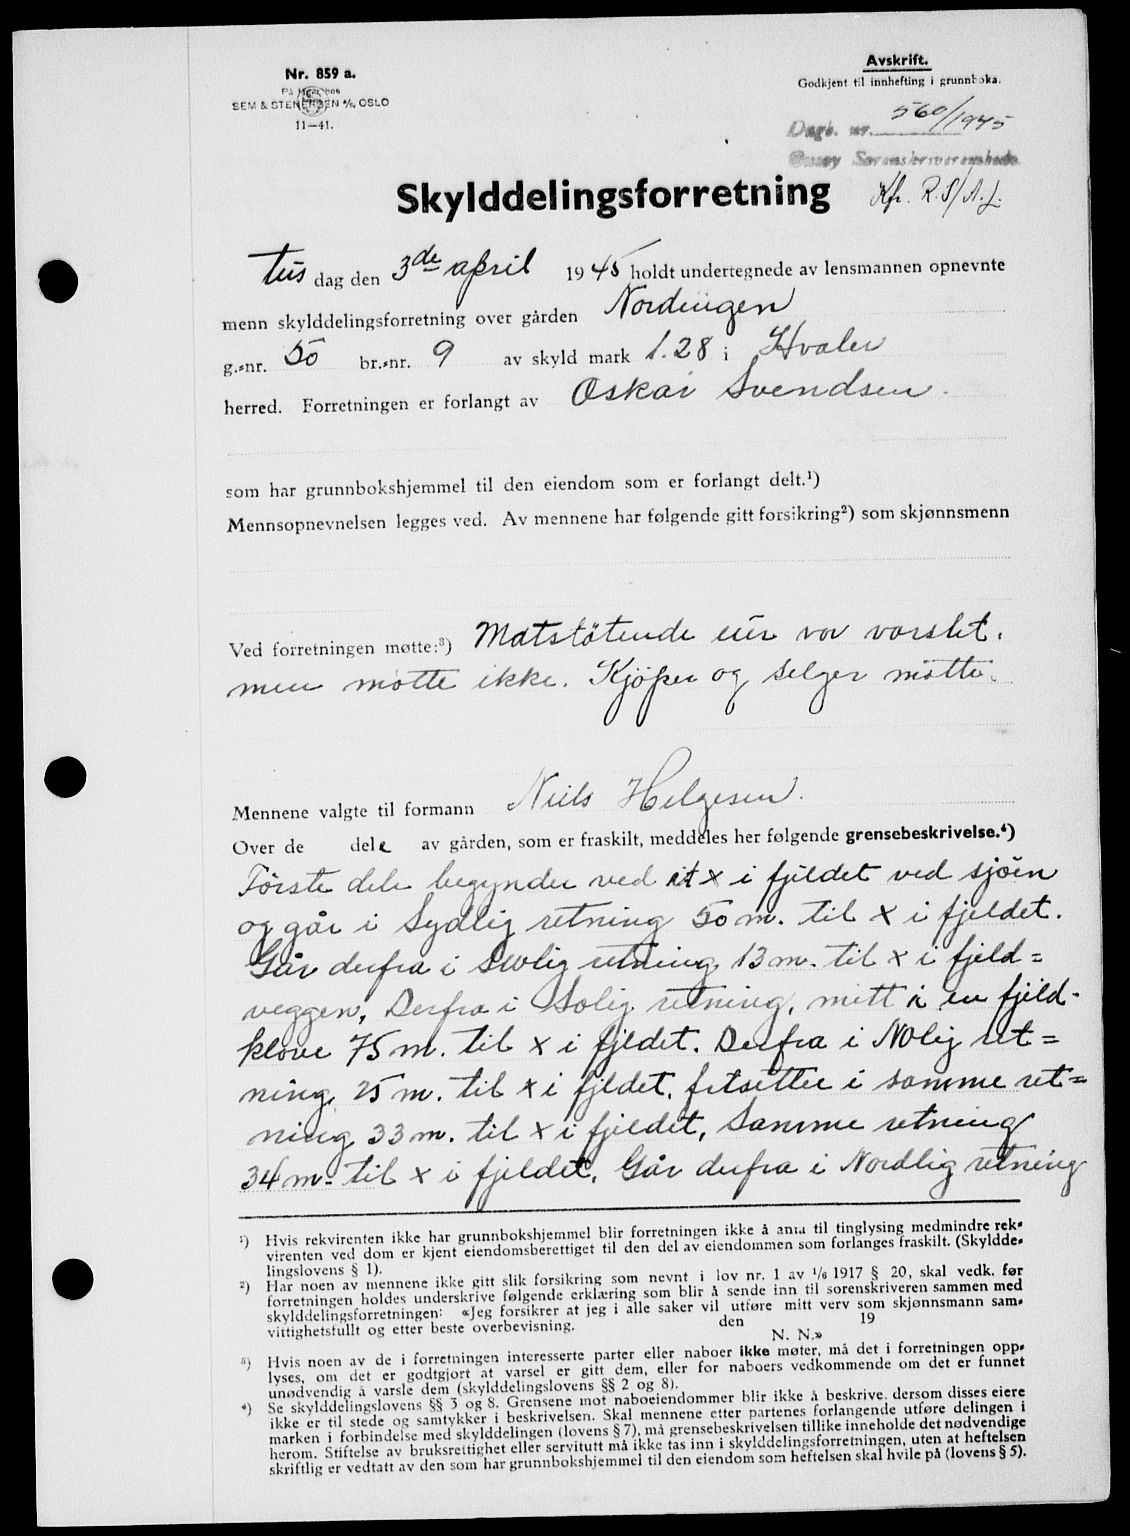 Nr. 859 a.
SEM & STENERSEN A/S, OSLO
11—41.
Avskrift.
Godkjent til innhefting i grunnboka.
Dagb. nr. 560/1945
Onsøy Sorenskriverembede
Kfr. R.S/A.J.
Skylddelingsforretning
Tirs dag den 3de april 1945 holdt undertegnede av lensmannen opnevnte
menn skylddelingsforretning over gården Nordengen
g.-nr. 50 br.-nr. 9 av skyld mark 1.28 i Hvaler
herred. Forretningen er forlangt av Oskar Svendsen.
som har grunnbokshjemmel til den eiendom som er forlangt delt.¹)
Mennsopnevnelsen legges ved. Av mennene har følgende gitt forsikring²) som skjønnsmenn
Ved forretningen møtte:³) Motstötende eier var varslet.
men mötte ikke. Kjöper og selger mötte.
Mennene valgte til formann Niels Helgesen.
Over de dele av gården, som er fraskilt, meddeles her følgende grensebeskrivelse.⁴)
Förste dele begynder ved et x i fjeldet ved sjöen
og går i Sydlig retning 50 m. til x i fjeldet.
Går derfra i SVolig retning 13 m. til x i fjeld=
veggen, Derfra i Solig retning, mitt i en fjeld-
klöve 75 m. til x i fjeldet. Derfra i NOlig ret=
ning 25 m. til x i fjeldet, fortsetter i samme ret=
ning 33 m. til x i fjeldet, Samme retning
34 m. til x i fjeldet. Går derfra i Nordlig retning
¹) Hvis rekvirenten ikke har grunnbokshjemmel blir forretningen ikke å anta til tinglysing medmindre rek-
virenten ved dom er kjent eiendomsberettiget til den del av eiendommen som forlanges fraskilt. (Skyldde-
lingslovens § 1).
²) Har noen av mennene ikke gitt slik forsikring som nevnt i lov nr. 1 av 1/6 1917 § 20, skal vedk. før
forretningen holdes underskrive følgende erklæring som blir å sende inn til sorenskriveren sammen med
skylddelingsforretningen: «Jeg forsikrer at jeg i alle saker vil utføre mitt verv som skjønnsmann sam-
vittighetsfullt og etter beste overbevisning. den 19
N. N.»
³) Hvis noen av de i forretningen interesserte parter eller naboer ikke møter, må det i forretningen opp-
lyses, om det er godtgjort at varsel er gitt dem, eller for naboers vedkommende om det er funnet
unødvendig å varsle dem (skylddelingslovens §§ 2 og 8).
⁴) Se skylddelingslovens §§ 3 og 8. Grensene mot naboeiendommer blir ikke å beskrive, dersom disses eiere
ikke er til stede og samtykker i beskrivelsen. Skal mennene etter partenes forlangende utføre delingen i
marken i forbindelse med skylddelingen (lovens § 7), må grensebeskrivelsen tillike inneholde det nødvendige
herom. Stiftelse av bruksrettighet eller servitutt må ikke tas inn i skylddelingsforretningen, uten at heftelsen
skriftlig er vedtatt av den som har grunnbokshjemmel til den eiendom som heftelsen skal hvile på (lovens § 5).